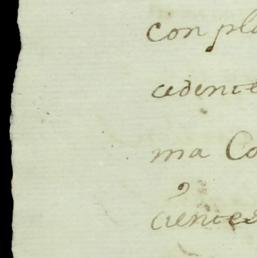 con pla
cedente
ma Co
cientes